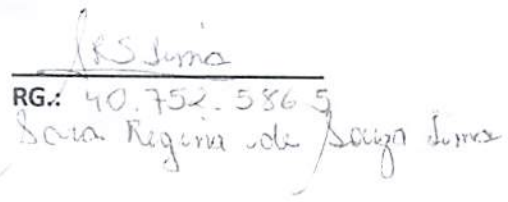 SRS Lima
RG.: 40.752.586 5
Sara Regina de Souza Lima